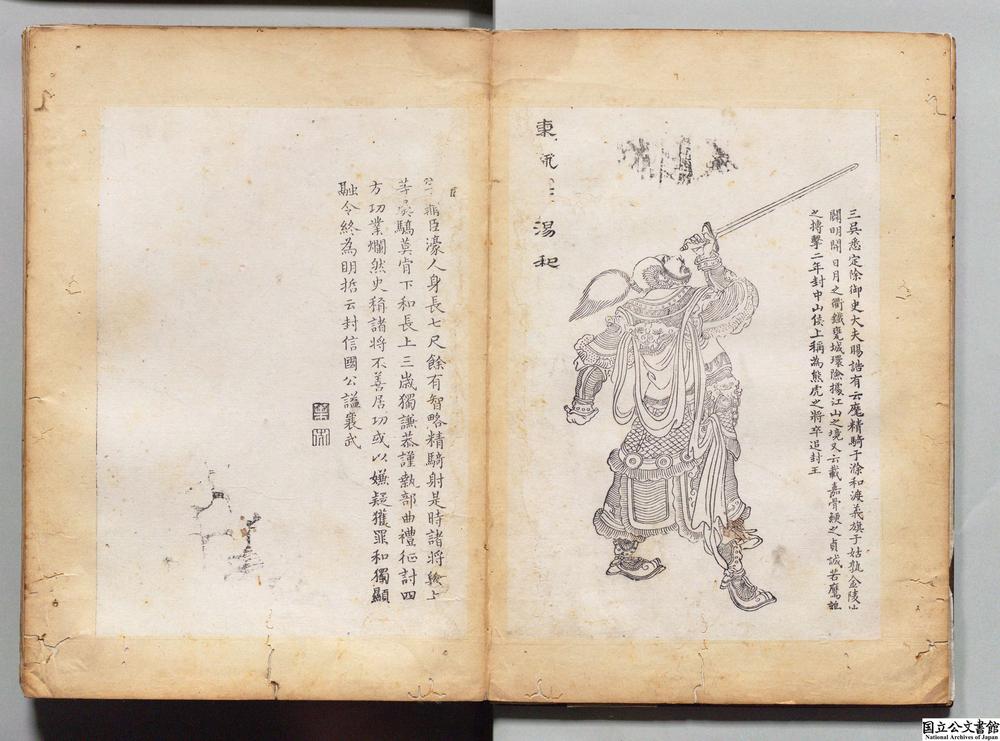 三吳悉定除御史大夫賜誥有云麾精騎于滁和渡義旗于姑孰金陵山
關明開日月之衢鐵甕城環險據江山之境又云載嘉骨鯁之貞誠若鷹
之搏擊二年封中山侯上稱為熊虎之將卒追封王
東 湯和
臣濠人身長七尺餘有智略精騎射是時諸將
驕莫肯下和長上三歲獨謙恭謹執部曲禮征討四
方功業爛然史稱諸將不善居功或以嫌疑獲罪和獨顯
融令終為明哲云封信國公謚襄武
国立公文書館
National Archives of Japan